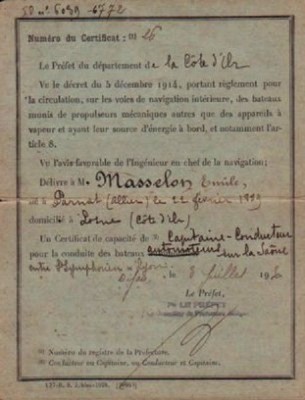 SD n° 6039 - 6772
Numéro du Certificat: (1) 26
Le Préfet du département de la Côte d'Or
Vu le décret du 5 décembre 1914, portant règlement pour
la circulation, sur les voies de navigation intérieure, des bateaux
munis de propulseurs mécaniques autres que des appareils à
vapeur et ayant leur source d'énergie à bord, et notamment l'ar-
ticle 8.
Vu l'avis favorable de l'Ingénieur en chef de la navigation;
Délivre à M. Masselon Emile,
né à (Allier) le 22 février
domicilié à Losne (Côte d'Or)
Un Certificat de capacité de (2) Capitaine-Conducteur
pour la conduite des bateaux automoteurs sur la Saône
entre St Symphorien et Lyon.
le 8 Juillet
Le Préfet,
LE PREFET
(1) Numéro du registre de la Préfecture.
(2) Conducteur ou Capitaine, ou Conducteur et Capitaine.